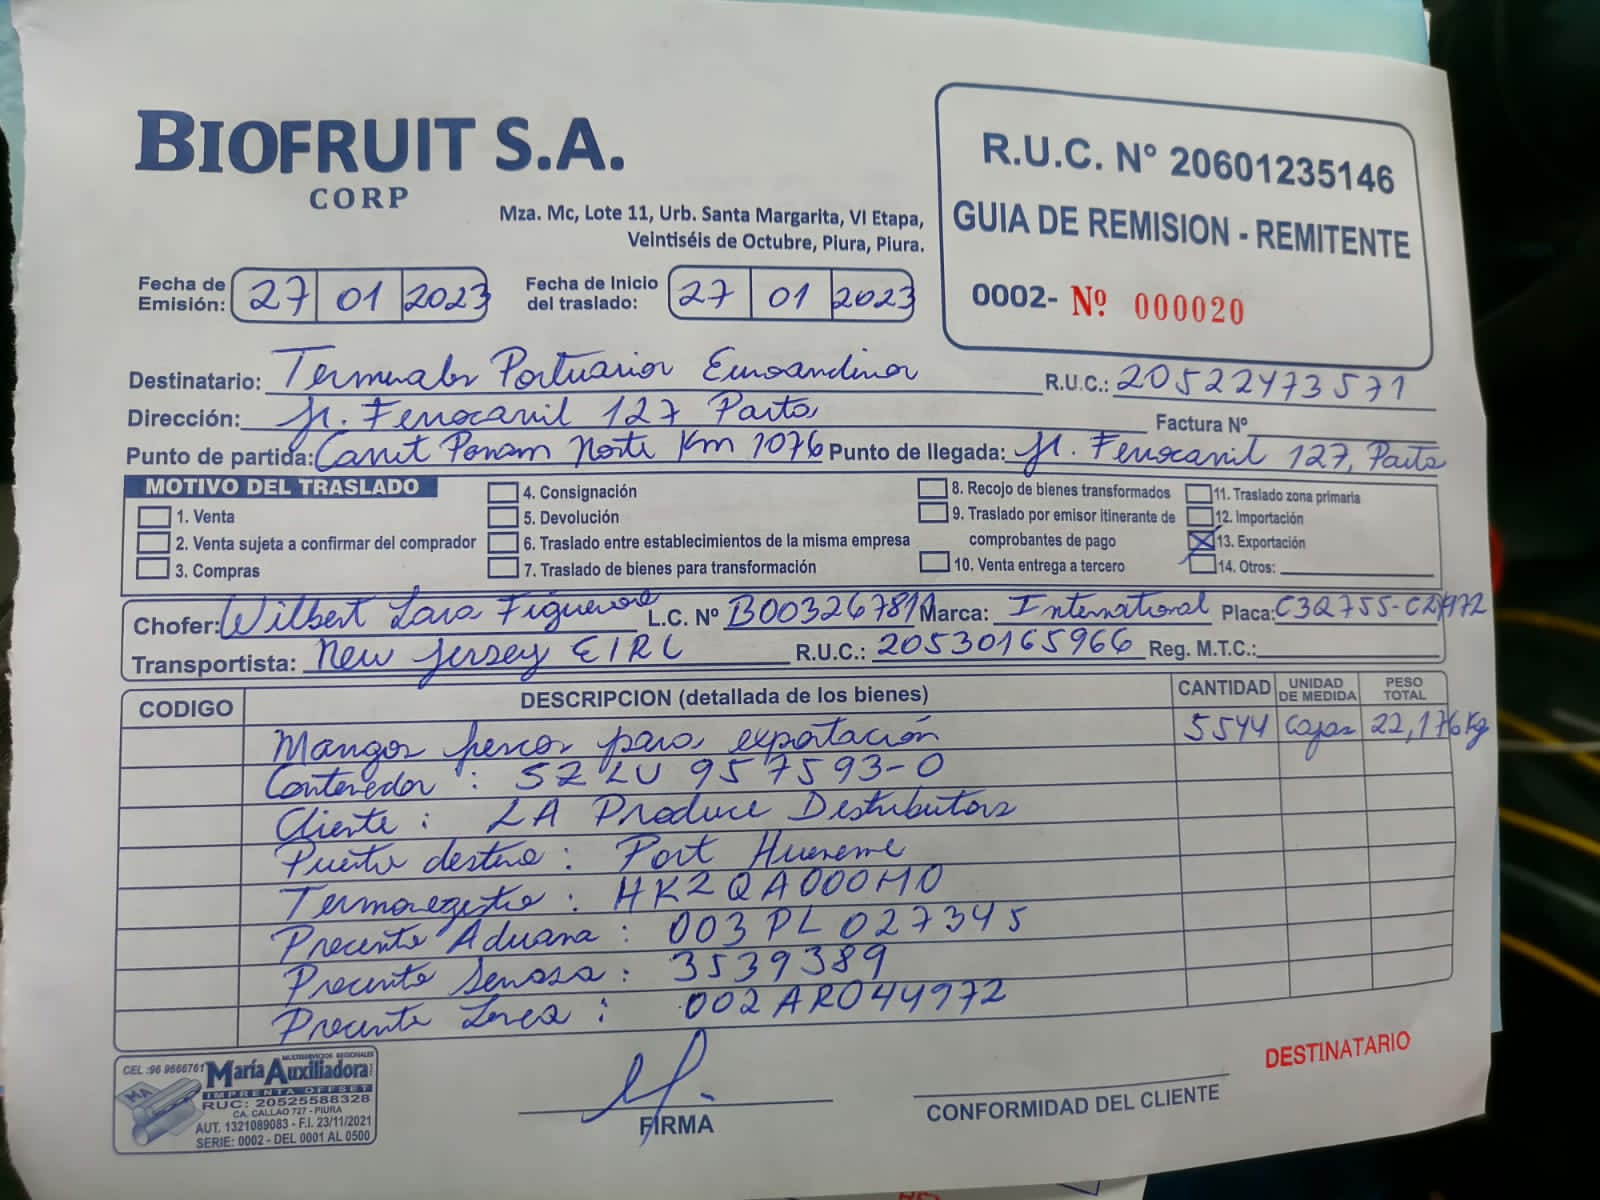 BIOFRUIT S.A.
CORP
Mza. Mc, Lote 11, Urb. Santa Margarita, VI Etapa,
Veintiséis de Octubre, Piura, Piura.
R.U.C. N° 20601235146
GUIA DE REMISION - REMITENTE
0002- Nº 000020
Fecha de Emisión: 27 01 2023 Fecha de Inicio del traslado: 27 01 2023
Destinatario: Terminales Portuarios Euroandinos R.U.C.: 20522473571
Dirección: Jr. Ferrocarril 127 Paita Factura Nº
Punto de partida: Carret Panam Norte Km 1076 Punto de llegada: Jr. Ferrocarril 127, Paita
MOTIVO DEL TRASLADO
1. Venta
2. Venta sujeta a confirmar del comprador
3. Compras
4. Consignación
5. Devolución
6. Traslado entre establecimientos de la misma empresa
7. Traslado de bienes para transformación
8. Recojo de bienes transformados
9. Traslado por emisor itinerante de
comprobantes de pago
10. Venta entrega a tercero
11. Traslado zona primaria
12. Importación
13. Exportación
14. Otros:
Chofer: Wilbert Lara Figueroa L.C. Nº Marca: International Placa:
Transportista: New Jersey EIRL R.U.C.: 20530165966 Reg. M.T.C.:
CODIGO DESCRIPCION (detallada de los bienes) CANTIDAD UNIDAD DE MEDIDA PESO TOTAL
Mangos frescos para exportación 5544 Cajas 22,176 Kg
Contenedor : SZLU 957593-0
Cliente : LA Produce Distributors
Puerto destino : Port Hueneme
Termoregistro : HK2QA000M0
Precinto Aduana : 003PL027345
Precinto Senasa : 3539389
Precinto Linea : 002ARO44972
CEL :96 9666761
MULTISERVICIOS REGIONALES
María Auxiliadora
IMPRENTA OFFSET
RUC: 20525588328
CA. CALLAO 727 - PIURA
AUT. 1321089083 - F.I. 23/11/2021
SERIE: 0002 - DEL 0001 AL 0500
MA
FIRMA
CONFORMIDAD DEL CLIENTE
DESTINATARIO